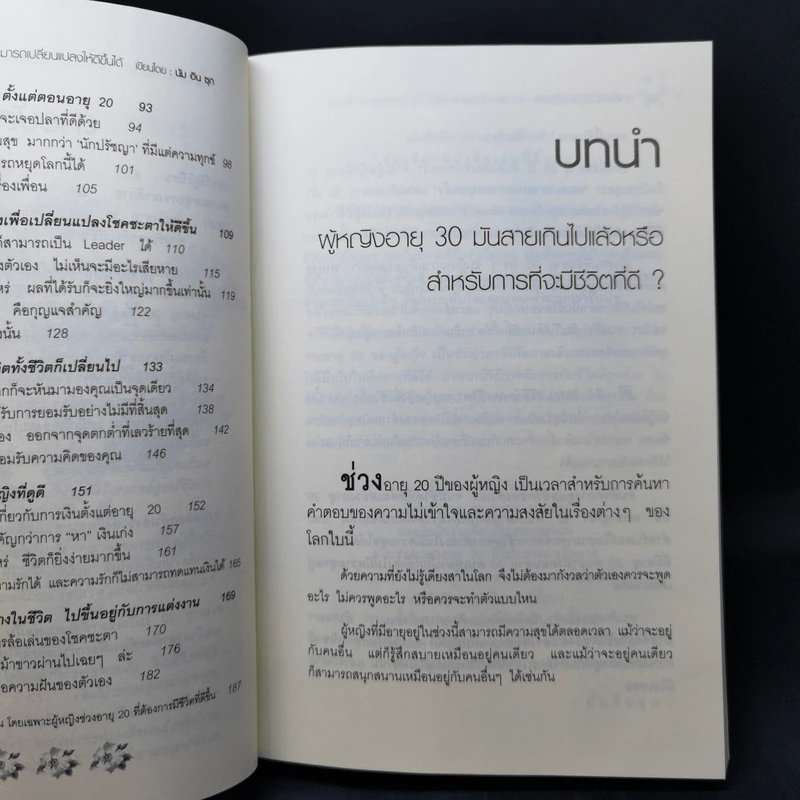 มารถเปลี่ยนแปลงให้ดีขึ้นได้ เขียนโดย : นัม อิน ซุก
ตั้งแต่ตอนอายุ 20 93
จะเจอปลาที่ดีด้วย 94
มสุข มากกว่า 'นักปรัชญา' ที่มีแต่ความทุกข์ 98
รถหยุดโลกนี้ได้ 101
รื่องเพื่อน 105
งเพื่อเปลี่ยนแปลงโชคชะตาให้ดีขึ้น 109
ก็สามารถเป็น Leader ได้ 110
งตัวเอง ไม่เห็นจะมีอะไรเสียหาย 115
หร่ ผลที่ได้รับก็จะยิ่งใหญ่มากขึ้นเท่านั้น 119
คือกุญแจสำคัญ 122
งนั้น 128
ชีวิตทั้งชีวิตก็เปลี่ยนไป 133
ลกก็จะหันมามองคุณเป็นจุดเดียว 134
รับการยอมรับอย่างไม่มีที่สิ้นสุด 138
อง ออกจากจุดตกต่ำที่เลวร้ายที่สุด 142
อมรับความคิดของคุณ 146
ญิงที่ดูดี 151
กี่ยวกับการเงินตั้งแต่อายุ 20 152
คัญกว่าการ "หา" เงินเก่ง 157
หร่ ชีวิตก็ยิ่งง่ายมากขึ้น 161
ามรักได้ และความรักก็ไม่สามารถทดแทนเงินได้ 165
างในชีวิต ไปขึ้นอยู่กับการแต่งงาน 169
ารล้อเล่นของโชคชะตา 170
ม้าขาวผ่านไปเฉยๆ ล่ะ 176
อความฝันของตัวเอง 182
น โดยเฉพาะผู้หญิงช่วงอายุ 20 ที่ต้องการมีชีวิตที่ดีขึ้น 187
บทนำ
ผู้หญิงอายุ 30 มันสายเกินไปแล้วหรือ
สำหรับการที่จะมีชีวิตที่ดี ?
ช่วงอายุ 20 ปีของผู้หญิง เป็นเวลาสำหรับการค้นหา
คำตอบของความไม่เข้าใจและความสงสัยในเรื่องต่างๆ ของ
โลกใบนี้
ด้วยความที่ยังไม่รู้เดียงสาในโลก จึงไม่ต้องมากังวลว่าตัวเองควรจะพูด
อะไร ไม่ควรพูดอะไร หรือควรจะทำตัวแบบไหน
ผู้หญิงที่มีอายุอยู่ในช่วงนี้สามารถมีความสุขได้ตลอดเวลา แม้ว่าจะอยู่
กับคนอื่น แต่ก็รู้สึกสบายเหมือนอยู่คนเดียว และแม้ว่าจะอยู่คนเดียว
ก็สามารถสนุกสนานเหมือนอยู่กับคนอื่นๆ ได้เช่นกัน